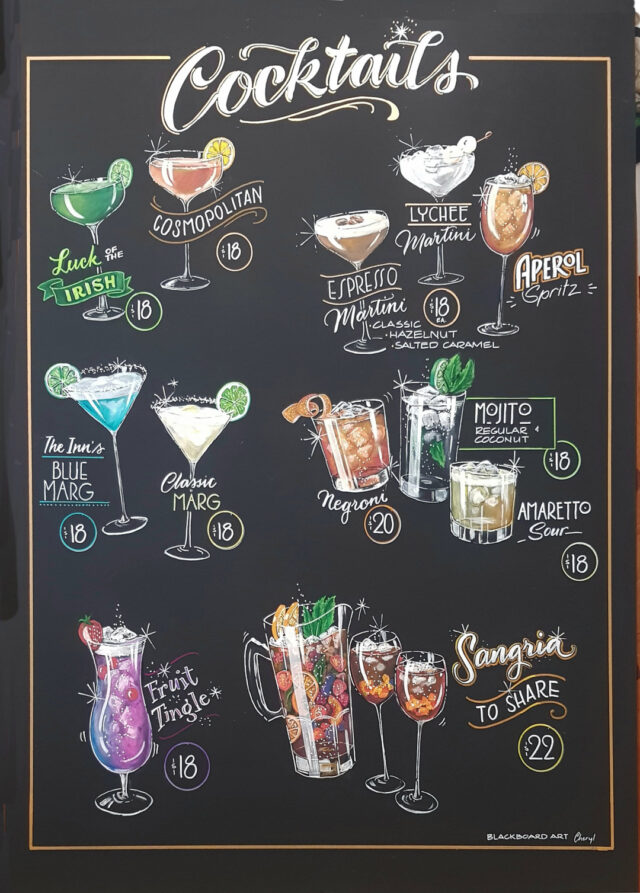 Cocktails
Luck OF THE
IRISH
$18
COSMOPOLITAN
$18
ESPRESSO
Martini
• CLASSIC
• HAZELNUT
• SALTED CARAMEL
LYCHEE
Martini
$18
EA.
APEROL
Spritz
The Inn's
BLUE
MARG
$18
Classic
MARG
$18
Negroni
$20
MOJITO
REGULAR +
COCONUT
$18
AMARETTO
Sour
$18
Fruit
Tingle
$18
Sangria
TO SHARE
$22
BLACKBOARD ART Cheryl